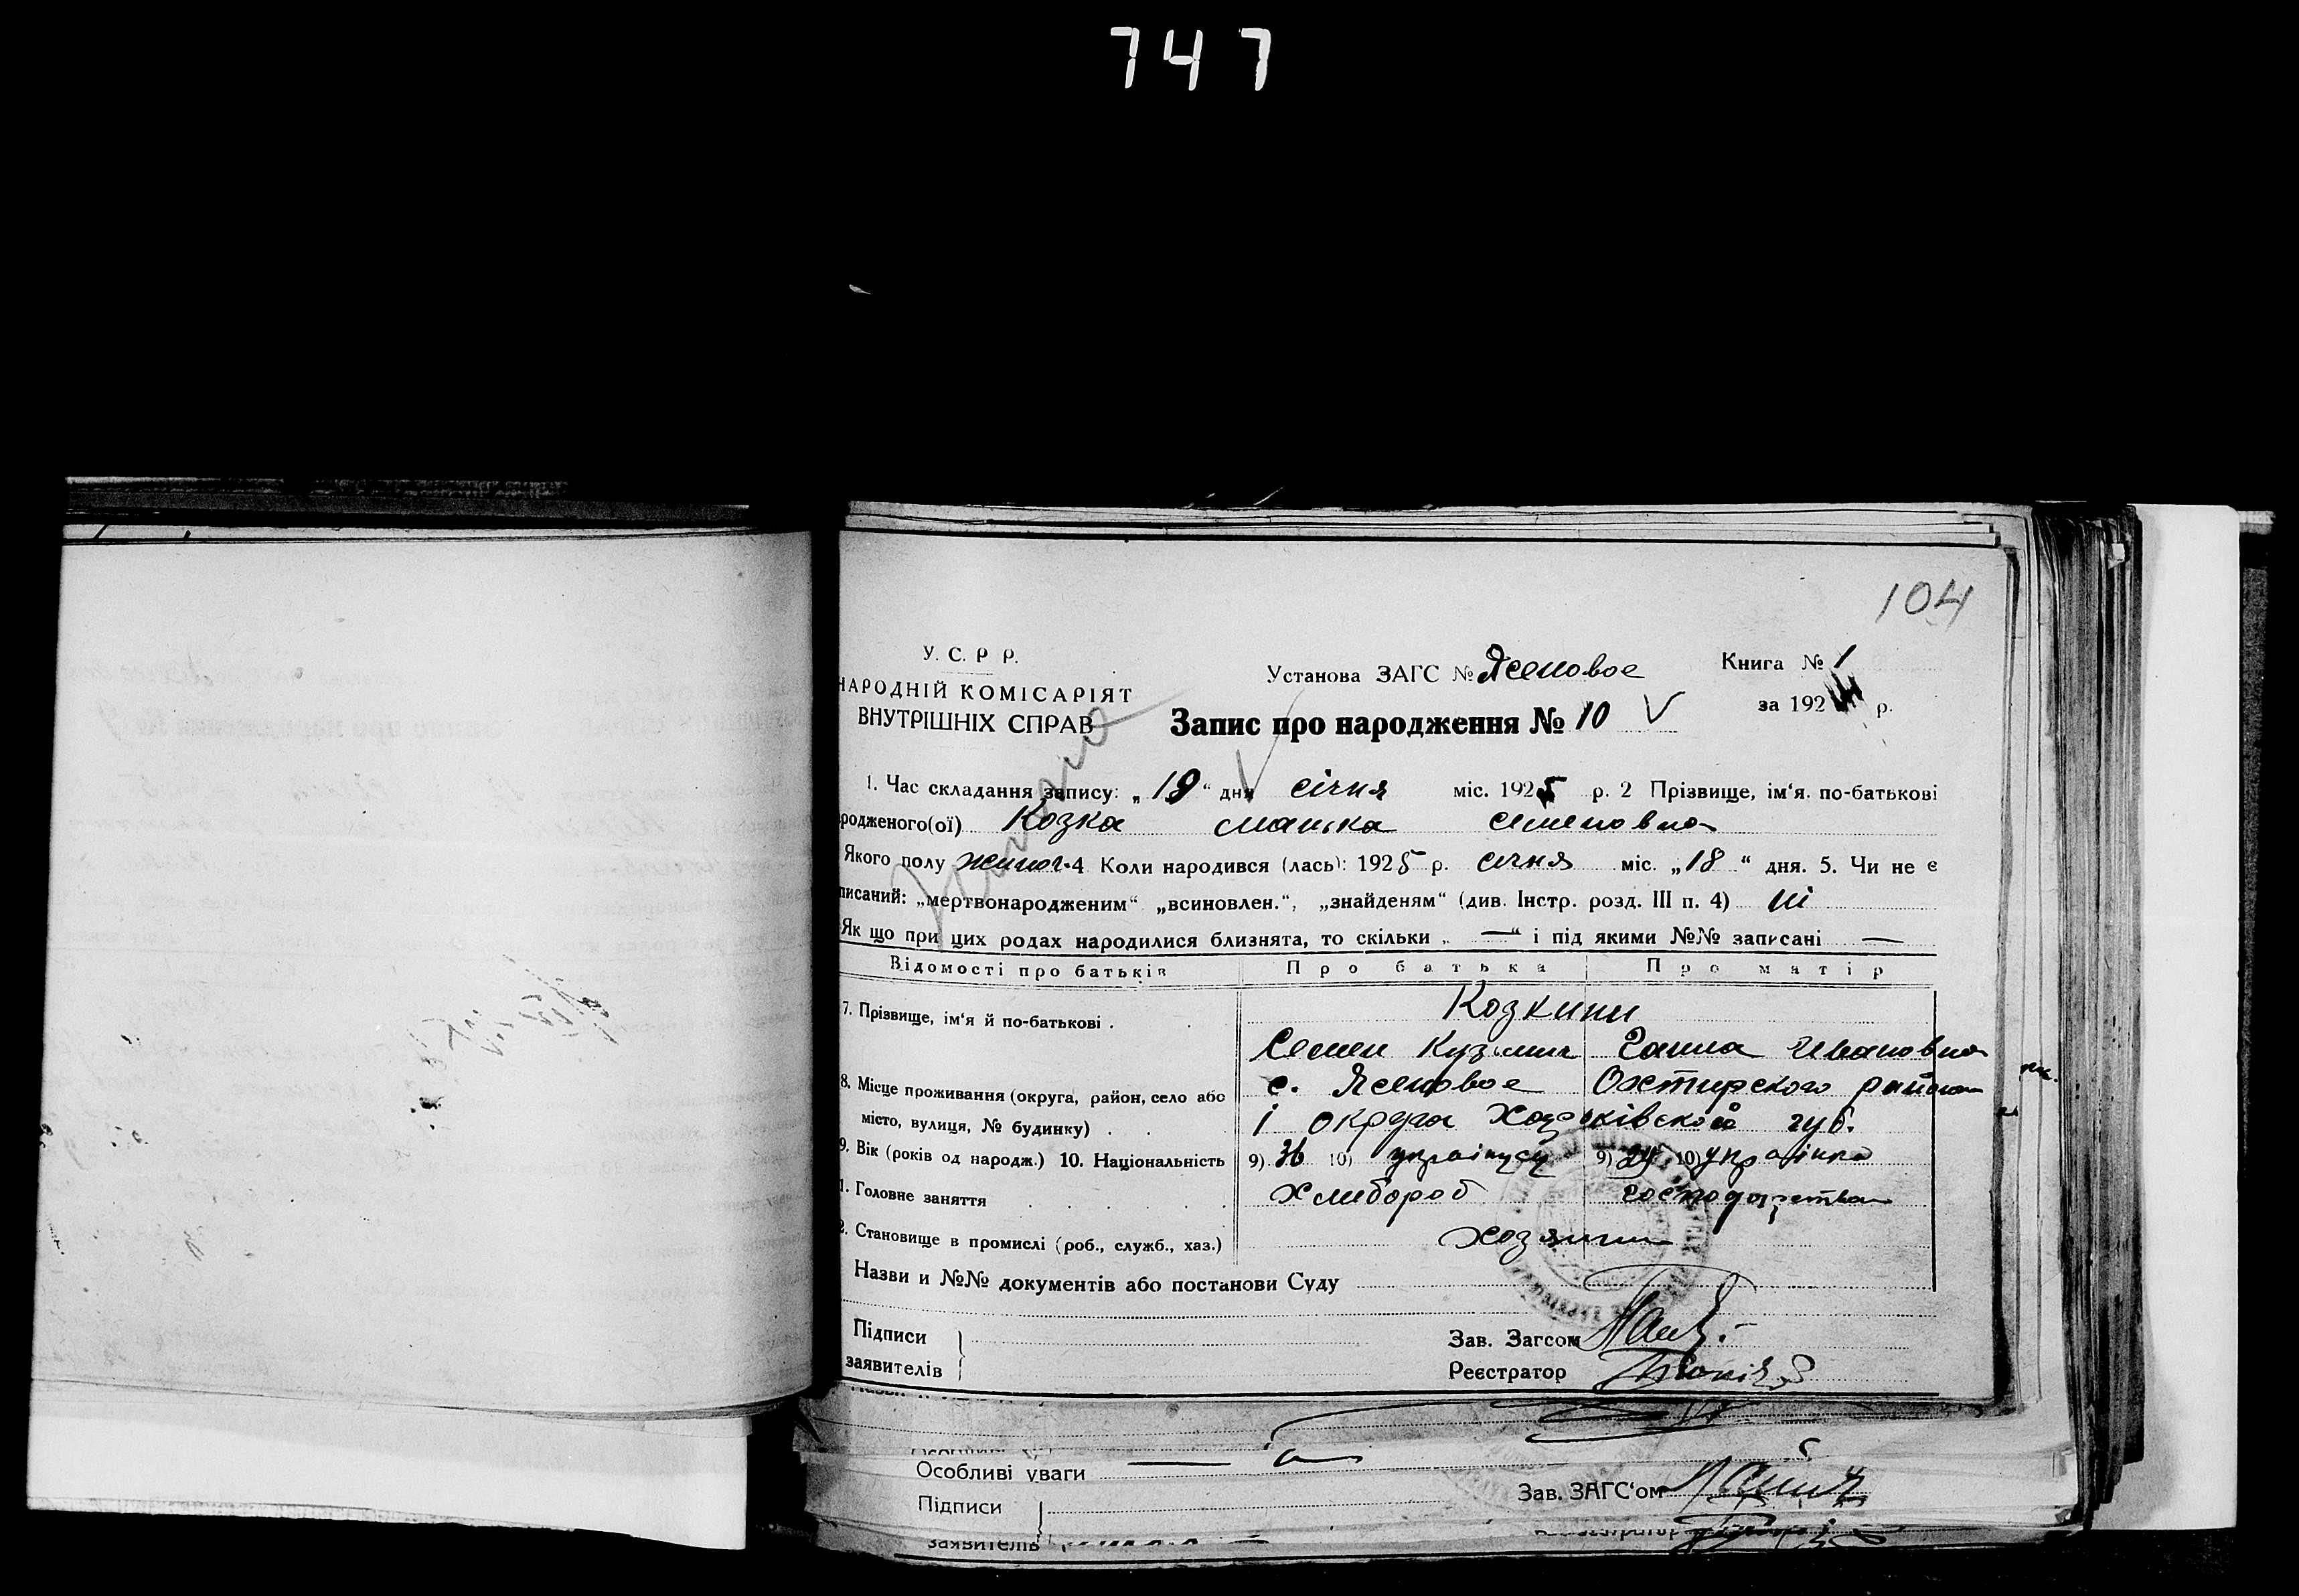 747
104
У. С. Р Р.
НАРОДНІЙ КОМІСАРІЯТ
ВНУТРІШНІХ СПРАВ
Установа ЗАГС № Ясеновое
Книга № 1
за 192 р.
Запис про народження № 10 V
1. Час складання запису: „19“ дня січня міс. 1925 р. 2 Прізвище, ім‘я. по-батькові
родженого(ої) Козка Манька Семеновна
Якого полу жиноч. 4 Коли народився (лась): 1925 р. січня міс. „18“ дня. 5. Чи не є
писаний: „мертвонародженим“ „всиновлен.“, „знайденям“ (див. Інстр. розд. III п. 4) ні
Як що при цих родах народилися близнята, то скільки „ — “ і під якими №№ записані —
Відомості про батьків Про батька Про матір
7. Прізвище, ім‘я й по-батькові . Козкини
Семен Кузьмич Ганна Ивановна
8. Місце проживання (округа, район, село або с. Ясеновое Охтирского района
місто, вулиця, № будинку) . і округа Харьківской губ.
9. Вік (років од народж.) 10. Національність 9) 36 10) українец 9) 24 10) українка
1. Головне заняття Хлибороб господарства
2. Становище в промислі (роб., служб., хаз.) хозяини
Назви и №№ документів або постанови Суду
Підписи
заявителів
Зав. Загсом
Реєстратор
Особливі уваги
Підписи
заявителів
Зав. ЗАГС‘ом